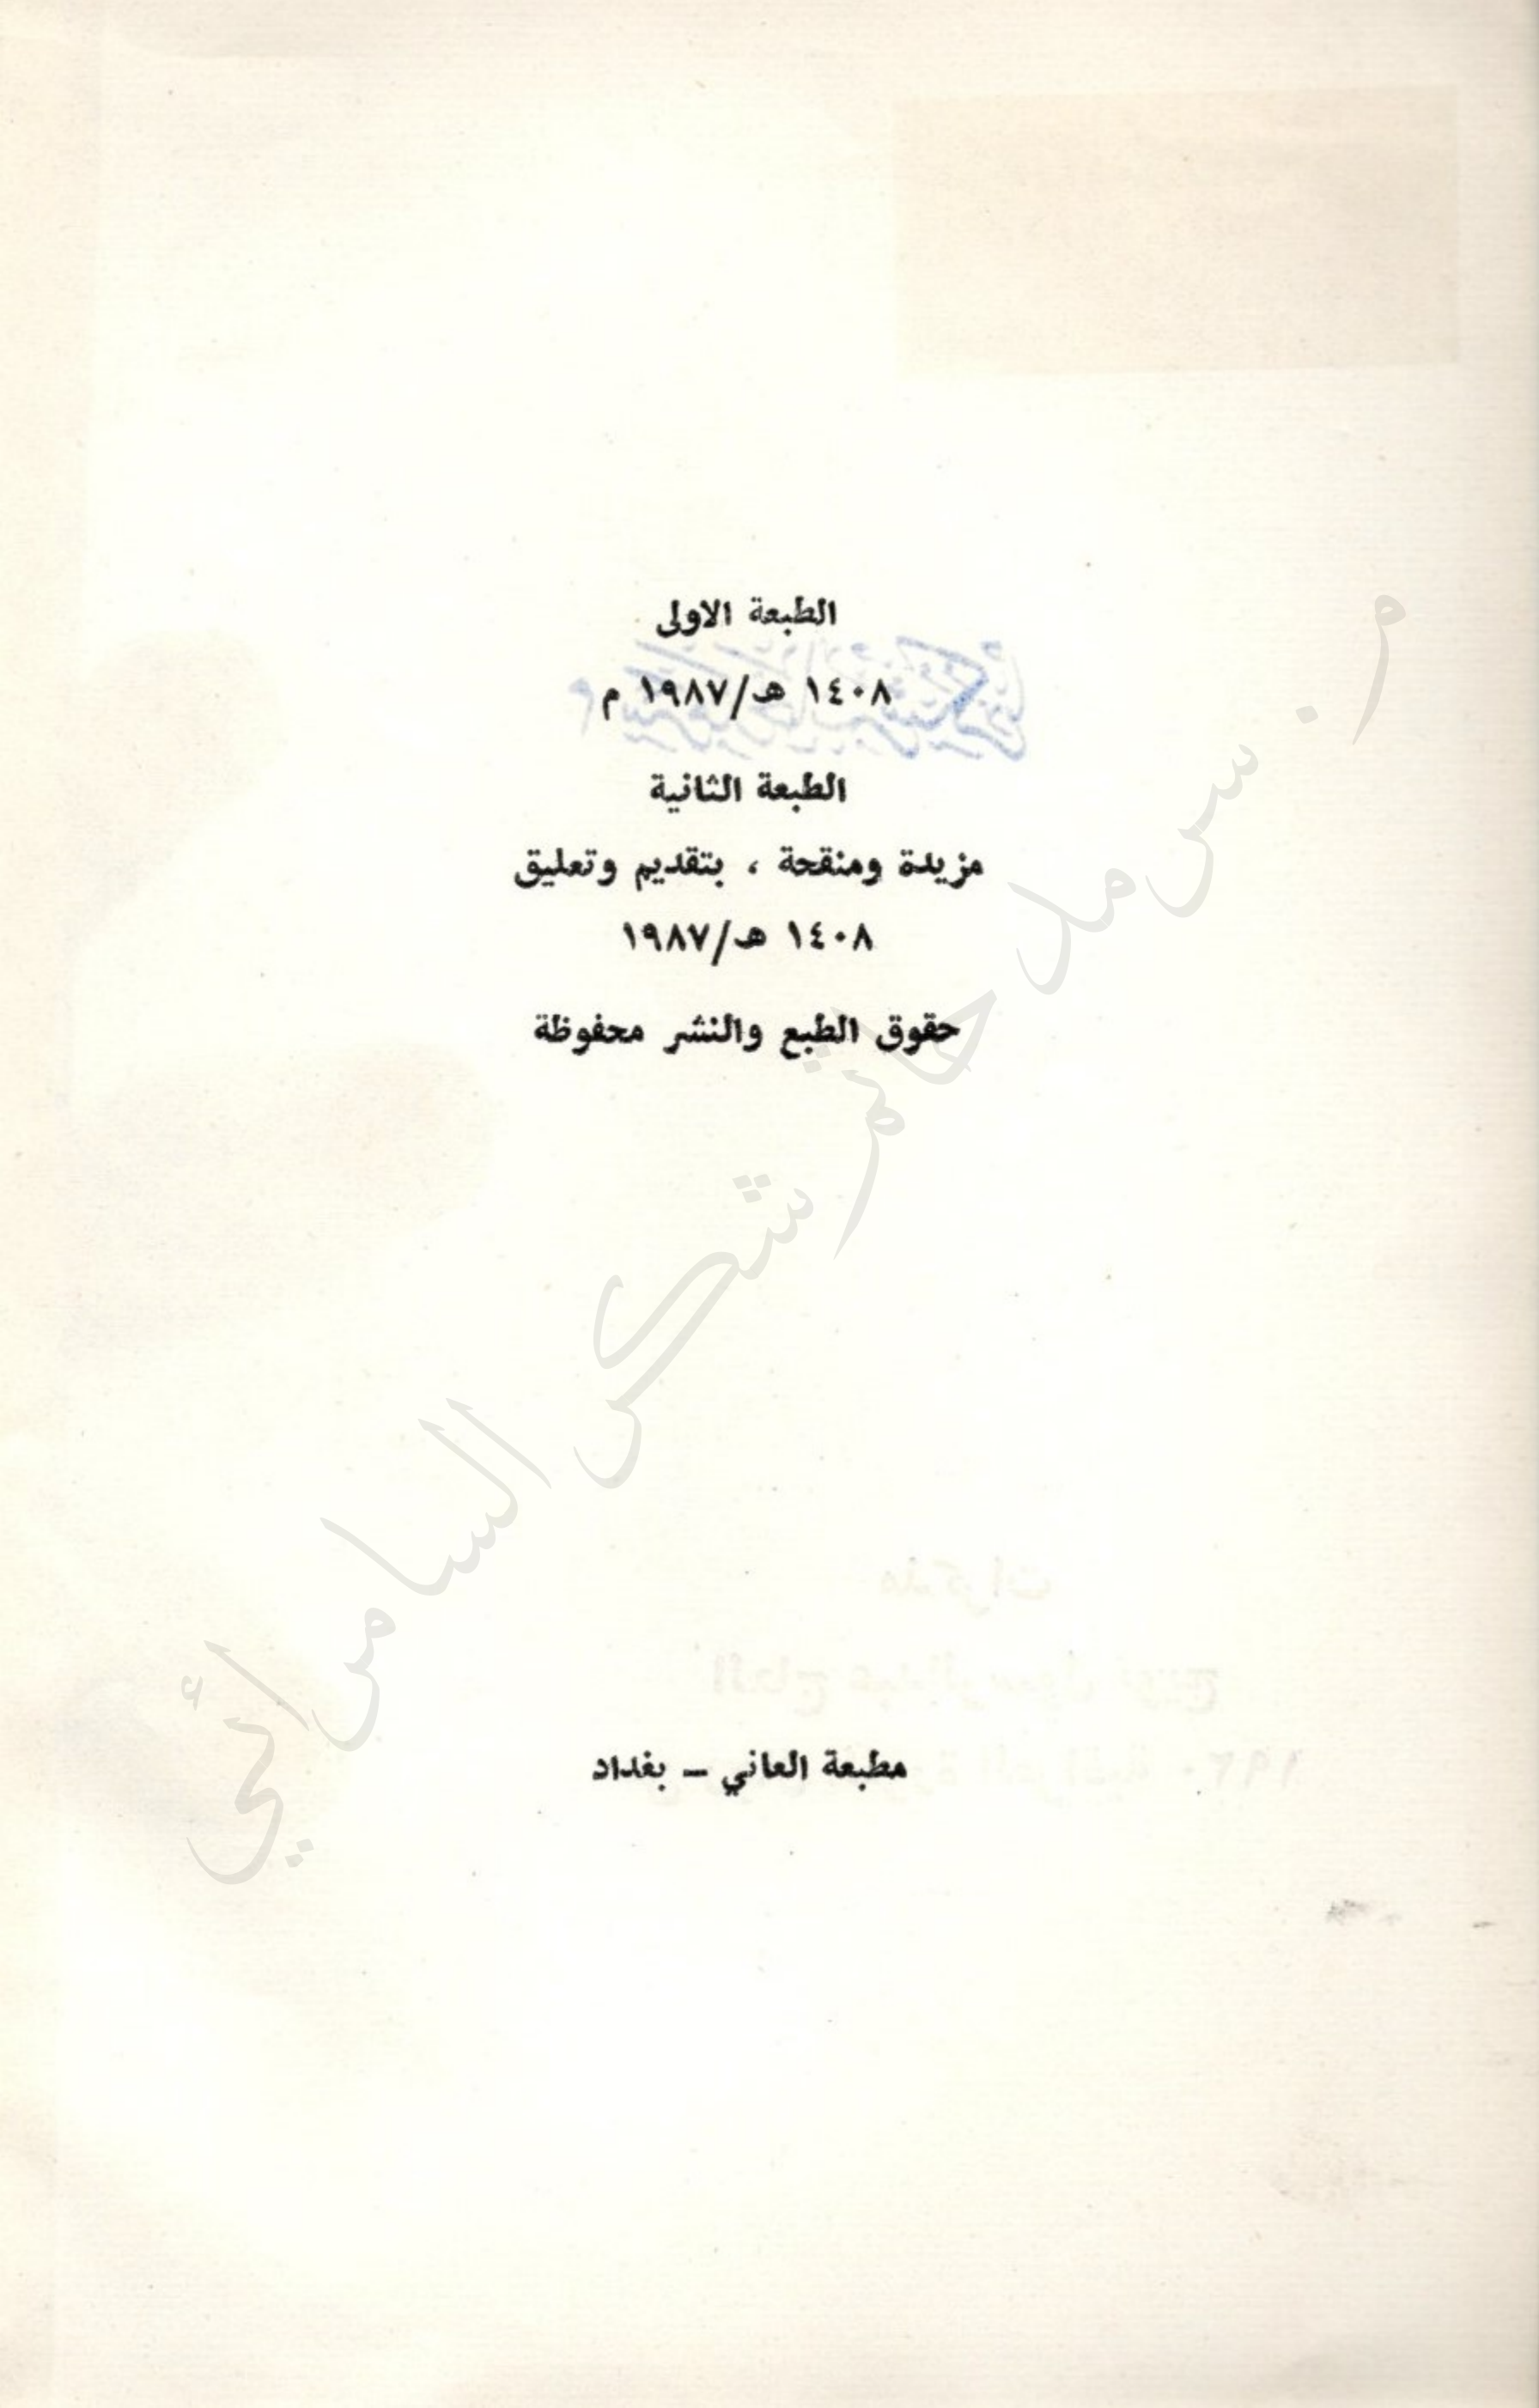 الطبعة الاولى
١٤٠٨ هـ/١٩٨٧ م
الطبعة الثانية
مزيدة ومنقحة ، بتقديم وتعليق
١٤٠٨ هـ/١٩٨٧
حقوق الطبع والنشر محفوظة
م. سرمد حاتم شكر السامرائي
مطبعة العاني – بغداد